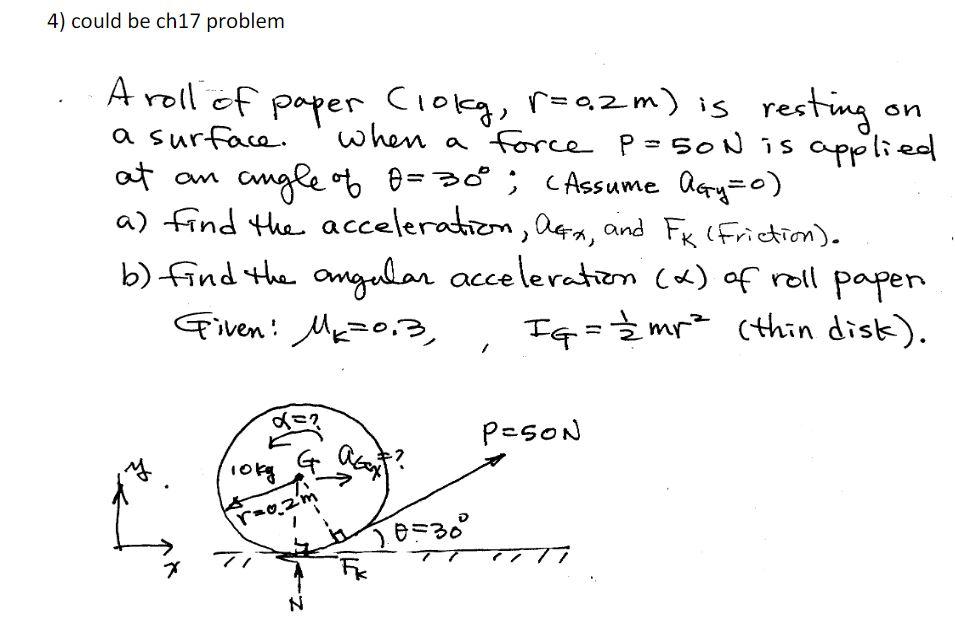 4) could be ch17 problem
A roll of paper (10kg, r=0.2m) is resting on
a surface. When a force P=50N is applied
at an angle of θ=30°; (Assume aGy=0)
a) find the acceleration, aGx, and FK (Friction).
b) find the angular acceleration (α) of roll paper
Given: μK=0.3, , IG=½mr² (thin disk).
α=?
P=50N
10kg G aGx=?
y
r=0.2m
θ=30°
x
FK
N